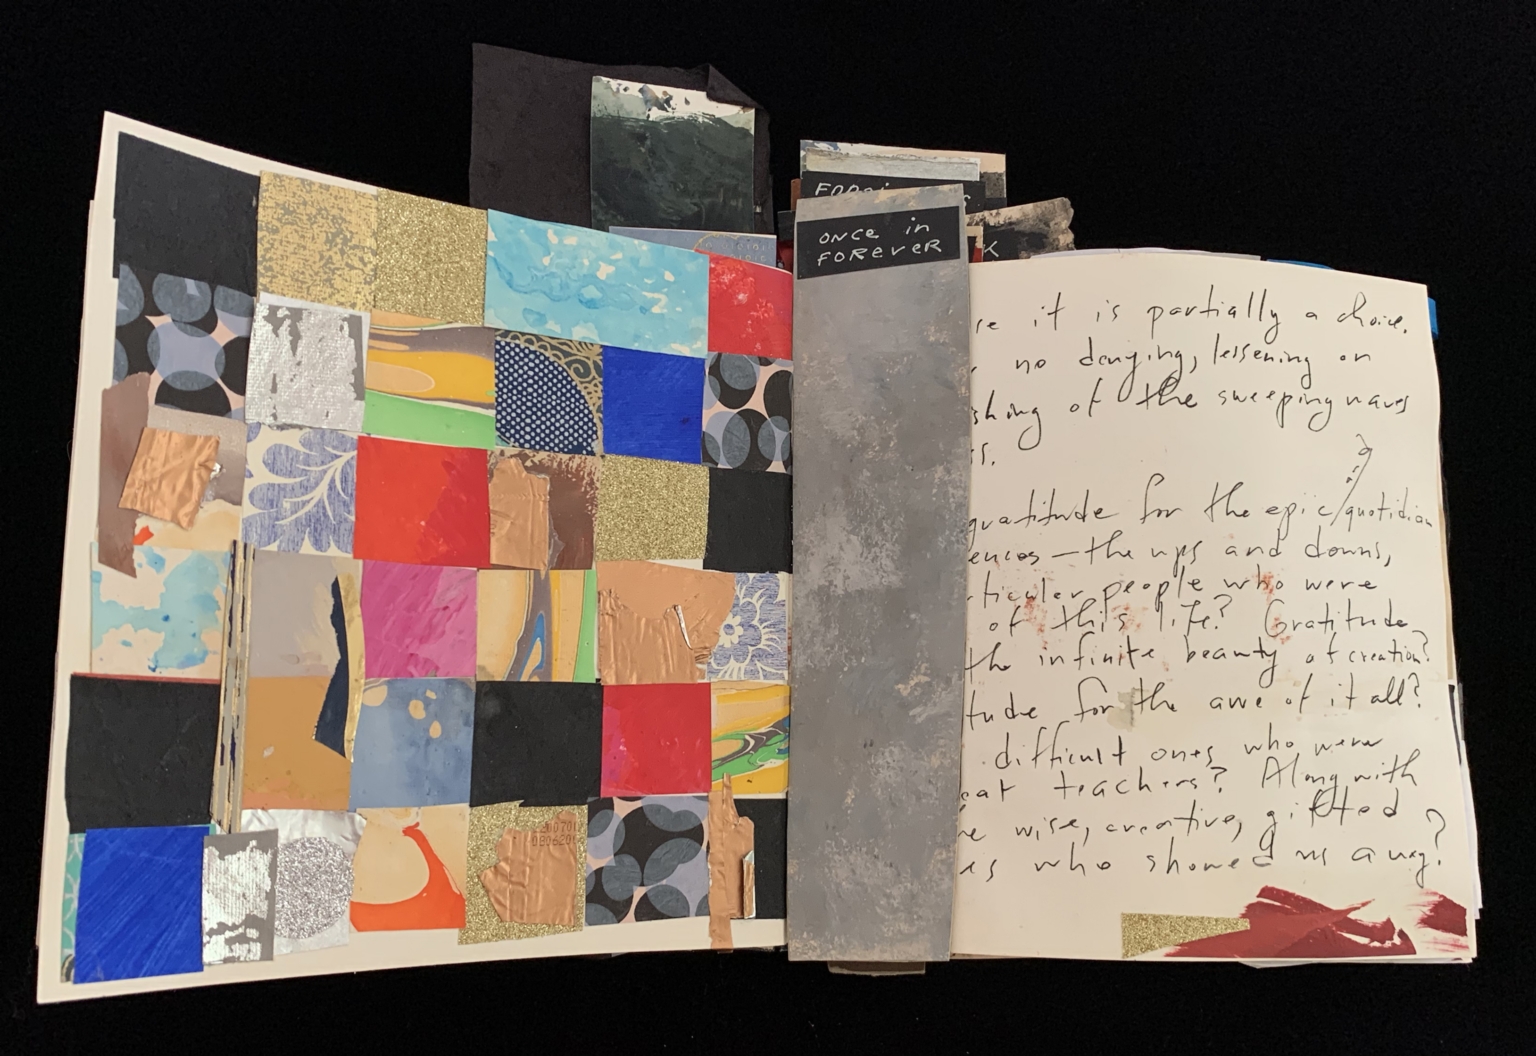 ONCE in
FOREVER
K
se it is partially a choice.
no denying, lessening or
shing of the sweeping waves
ss.
gratitude for the epic/quotidian
ences — the ups and downs,
rticular people who were
of this life? Gratitude
the infinite beauty of creation?
tude for the awe of it all?
difficult ones who were
eat teachers? Along with
he wise, creative, gifted
es who showed us a way?